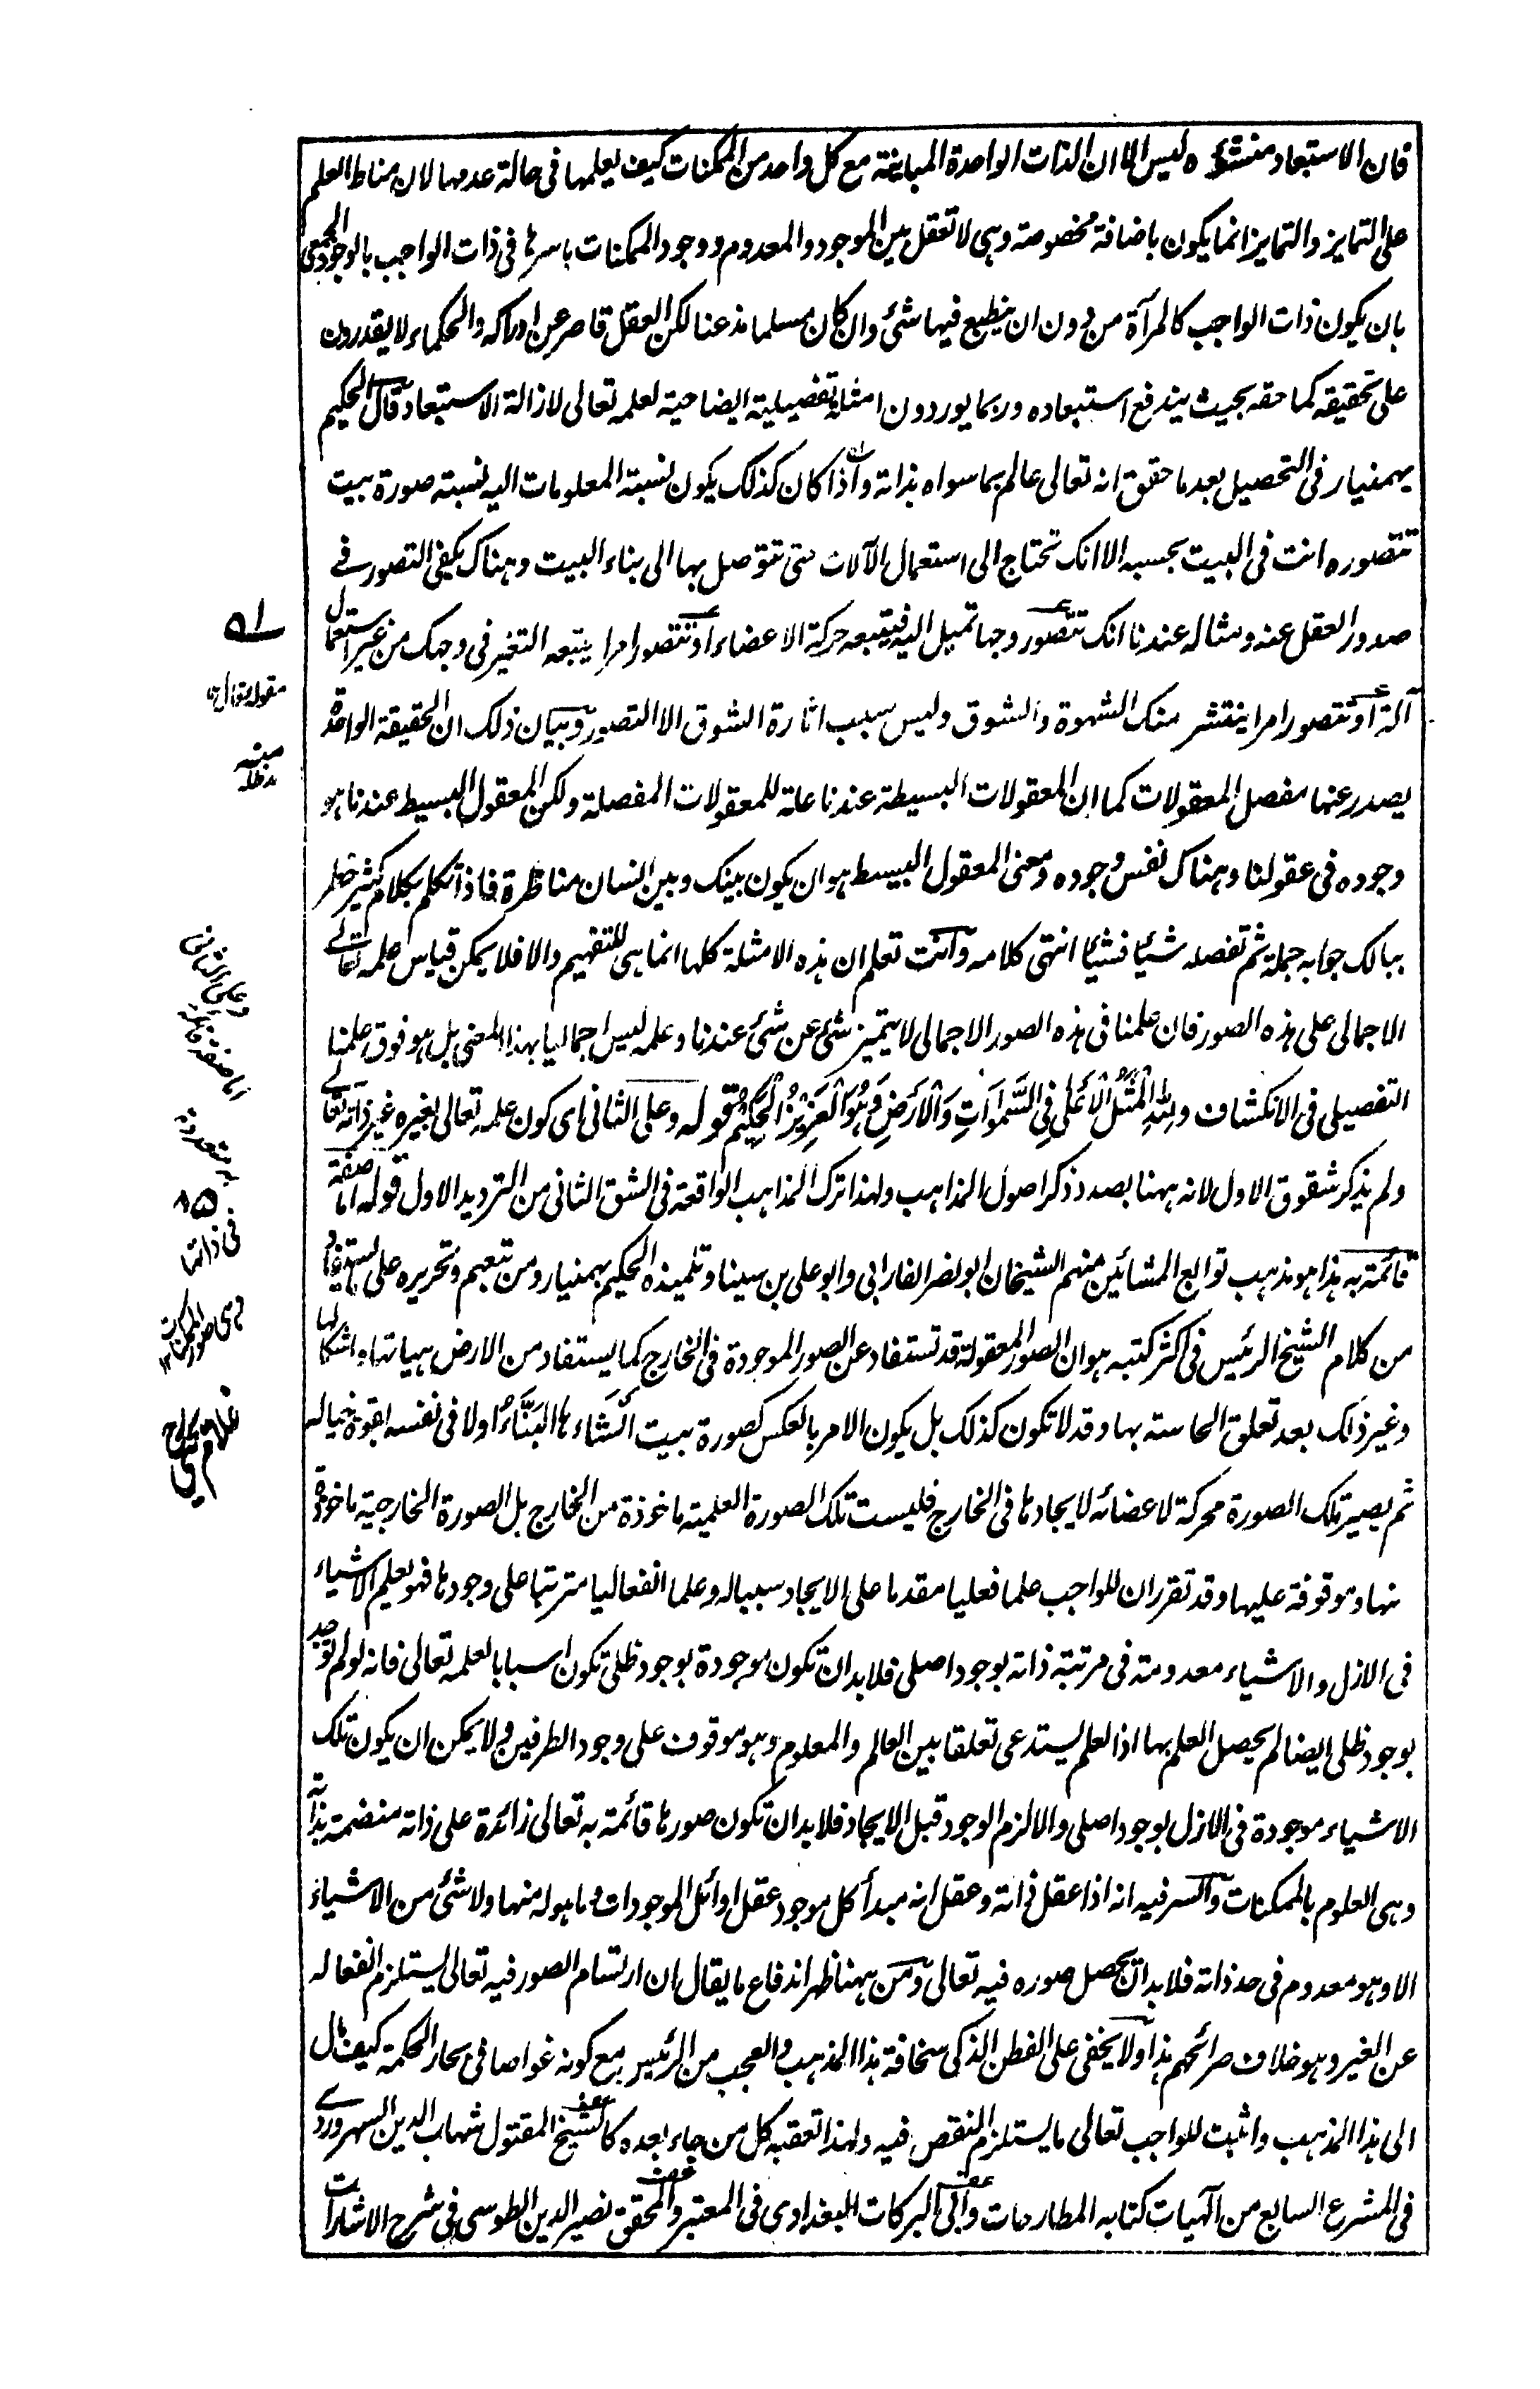 فان الاستبعاد منشؤه ليس الا ان الذات الواحدة المباينة مع كل واحد من الممكنات كيف يعلمها فى حالة عدمها لان مناط العلم
على التمايز والتمايز انما يكون باضافة مخصوصة وهى لا تعقل بين الموجود والمعدوم ووجود الممكنات باسرها فى ذات الواجب بالوجود الجمعى
بان يكون ذات الواجب كالمرآة من دون ان ينطبع فيها شئ وان كان مسلما مذعنا لكن العقل قاصر عن ادراكه والحكماء لا يقدرون
على تحقيقه كما حقه بحيث يندفع استبعاده وربما يوردون امثلة تفصيلية ايضاحية لعلمه تعالى لازالة الاستبعاد قال الحكيم
بهمنيار فى التحصيل بعد ما حقق انه تعالى عالم بما سواه بذاته واذا كان كذلك يكون نسبة المعلومات اليه نسبة صورة بيت
تتصوره انت فى البيت بحسبه الا انك تحتاج الى استعمال الآلات حتى تتوصل بها الى بناء البيت وهناك يكفى التصور فى
صدور العقل عنه ومثاله عندنا انك تتصور وجها تميل اليه فيتبعه حركة الاعضاء او تتصور امرا يتبعه التغير فى وجهك من غير استعمال
آلة او تتصور امرا ينتشر منك الشهوة والشوق وليس سبب اثارة الشوق الا التصور وبيان ذلك ان الحقيقة الواحدة
يصدر عنها مفصل المعقولات كما ان المعقولات البسيطة عندنا علة للمعقولات المفصلة ولكن المعقول البسيط عندنا هو
وجوده فى عقولنا وهناك نفس وجوده ومعنى المعقول البسيط هو ان يكون بينك وبين انسان مناظرة فاذا تكلم بكلام كثير خطر
ببالك جوابه جملة ثم تفصله شيئا فشيئا انتهى كلامه وانت تعلم ان هذه الامثلة كلها انما هى للتفهيم والا فلا يمكن قياس علمه تعالى
الاجمالى على هذه الصور فان علمنا فى هذه الصور الاجمالى لا يتميز شئ عن شئ عندنا وعلمه ليس اجماليا بهذا المعنى بل هو فوق علمنا
التفصيلى فى الانكشاف ولِلّٰهِ الْمَثَلُ الْاَعْلٰى فِى السَّمٰوَاتِ وَالْاَرْضِ وَهُوَ الْعَزِيْزُ الْحَكِيْمُ قوله وعلى الثانى اى كون علمه تعالى بغيره غير ذاته تعالى
ولم يذكر شقوق الاول لانه ههنا بصدد ذكر اصول المذاهب ولهذا ترك المذاهب الواقعة فى الشق الثانى من الترديد الاول قوله اما صفة
قائمة به هذا هو مذهب توابع المشائين منهم الشيخان ابو نصر الفارابى وابو على بن سينا وتلميذه الحكيم بهمنيار ومن تبعهم وتحريره على ما يستفاد
من كلام الشيخ الرئيس فى اكثر كتبه هو ان الصور المعقولة قد تستفاد عن الصور الموجودة فى الخارج كما يستفاد من الارض هيأتها واشكالها
وغير ذلك بعد تعلق الحاسة بها وقد لا تكون كذلك بل يكون الامر بالعكس كصورة بيت انشاءها البَنَّاءُ اولا فى نفسه بقوة خياله
ثم يصير تلك الصورة محركة لاعضائه لايجادها فى الخارج فليست تلك الصورة العلمية ماخوذة من الخارج بل الصورة الخارجية ماخوذة
منها وموقوفة عليها وقد تقرر ان للواجب علما فعليا مقدما على الايجاد سببا له وعلما انفعاليا مترتبا على وجودها فهو يعلم الاشياء
فى الازل والاشياء معدومة فى مرتبة ذاته بوجود اصلى فلا بد ان تكون موجودة بوجود ظلى تكون اسبابا لعلمه تعالى فانه لو لم توجد
بوجود ظلى ايضا لم يحصل العلم بها اذ العلم يستدعى تعلقا بين العالم والمعلوم وهو موقوف على وجود الطرفين ولا يمكن ان يكون تلك
الاشياء موجودة فى الازل بوجود اصلى والا لزم الوجود قبل الايجاد فلا بد ان تكون صورها قائمة به تعالى زائدة على ذاته منضمة بذاته
وهى العلوم بالممكنات والسر فيه انه اذا عقل ذاته وعقل انه مبدأ كل موجود عقل اوائل الموجودات وما هو له منها ولا شئ من الاشياء
الا وهو معدوم فى حد ذاته فلا بد ان يحصل صوره فيه تعالى ومن ههنا ظهر اندفاع ما يقال ان ارتسام الصور فيه تعالى يستلزم انفعاله
عن الغير وهو خلاف صرائحهم هذا ولا يخفى على الفطن الذكى سخافة هذا المذهب والعجب من الرئيس مع كونه غواصا فى بحار الحكمة كيف مال
الى هذا المذهب واثبت للواجب تعالى ما يستلزم النقص فيه ولهذا تعقبه كل من جاء بعده كالشيخ المقتول شهاب الدين السهروردى
فى المشرع السابع من الٓهيات كتابه المطارحات وابى البركات البغدادى فى المعتبر والمحقق نصير الدين الطوسى فى شرح الاشارات
مقولة قال
منه
مد ظله
وعلى الثانى
اما صفة قائمة
به متعددة
فى ذاتها
وهى صور الممكنات